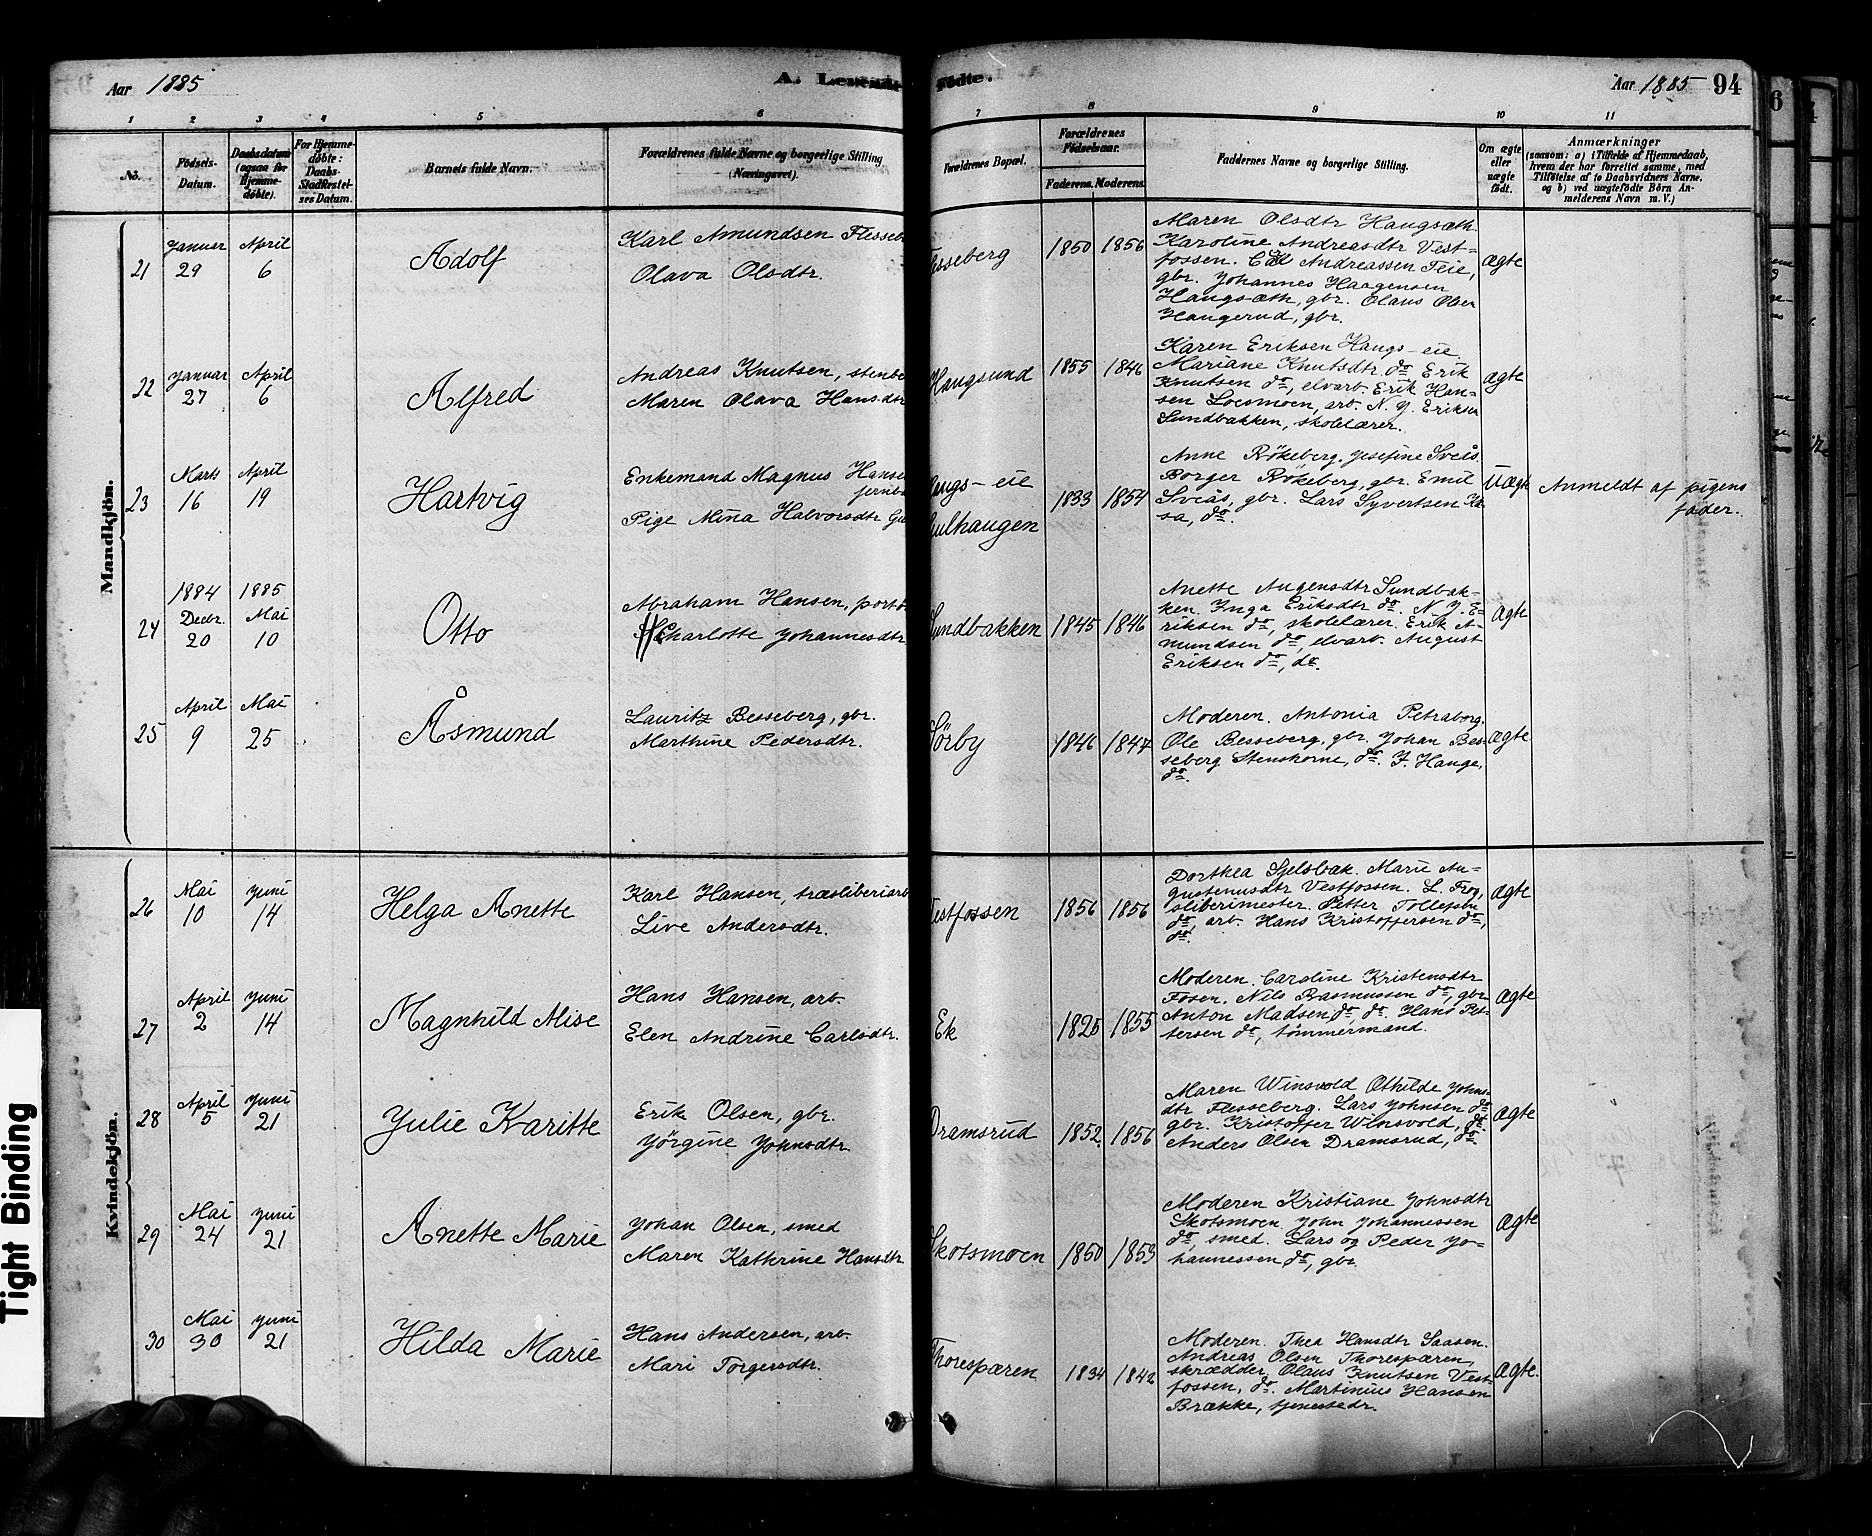 Aar 1885
A. Levende
Fødte.
Aar 1885
94
1 2 3 4 5 6 7 8 9 10 11
No.
Fødsels-
Datum.
Daabsdatum
(ogsaa for
Hjemme-
døbte).
For Hjemme-
døbte:
Daabs-
Stadfæstel-
ses Datum.
Barnets fulde Navn.
Forældrenes fulde Navne og borgerlige Stilling
(Næringsvei).
Forældrenes Bopæl.
Forældrenes
Fødselsaar.
Faderens. Moderens.
Faddernes Navne og borgerlige Stilling.
Om ægte
eller
uægte
født.
Anmærkninger
(saasom: a) i Tilfælde af Hjemmedaab,
hvem der har forrettet samme, med
Tilføielse af to Daabsvidners Navne.
og b) ved uægtefødte Børn An-
melderens Navn m. V.)
Mandkjøn.
21
Januar
29
April
6
Adolf
Karl Amundsen
Olava Olsdtr.
1850 1856
Maren Olsdtr Haugsæth
Karoline Andreasdtr Vest-
fossen. Andreassen Teie,
gbr. Johannes Haagensen
Haugsæth, gbr. Olaus Olsen
Haugerud, gbr.
ægte
22
Januar
27
April
6
Alfred
Andreas Knutsen,
Maren Olava Hansdtr
Haugsund
1855 1846
Karen Eriksen Haugs-eie
Mariane Knutsdtr do Erik
Knutsen do, elvarb. Erik Han-
sen Loesmoen, arb. N. J. Eriksen
Sundbakken, skolelærer.
ægte
23
Marts
16
April
19
Hartvig
Enkemand Magnus Hansen
Pige Mina Halvorsdtr
Haugs-eie
1833 1854
Anne Rökeberg. Josefine Sveås
Borger Rökeberg, gbr. Emil
Sveås, gbr. Lars Syvertsen Ka-
sa, do.
Uægte
Anmeldt af pigens
fader.
24
1884
Decbr.
20
1885
Mai
10
Otto
Abraham Hansen,
Charlotte Johannesdtr
Sundbakken
1845 1846
Anette Augensdtr Sundbak-
ken. Inga Eriksdtr do. N. J. E-
riksen do, skolelærer. Erik A-
mundsen do, elvarb. August
Eriksen do, do.
ægte
25
April
9
Mai
25
Åsmund
Lauritz Besseberg, gbr.
Marthine Pedersdtr.
Sörby
1846 1847
Moderen. Antonia Petraborg.
Ole Besseberg, gbr. Johan Bes-
seberg Stenshorne, do. F. Hauge,
do.
ægte
Kvindekjøn.
26
Mai
10
Juni
14
Helga Anette
Karl Hansen, træsliberiarb
Live Andersdtr.
Vestfossen
1856 1856
Dorthea Sjelsbæk. Marie Au-
gustinusdtr Vestfossen. L. Frog,
slibermester. Petter Tollefsen
do, arb. Hans Kristoffersen do,
do.
ægte
27
April
2
Juni
14
Magnhild Alise
Hans Hansen, arb.
Elen Andrine Carlsdtr.
Ek
1825 1855
Moderen. Caroline Kristensdtr
Fosen. Nils Rasmussen do, gbr
Anton Madsen do, do. Hans Pet-
tersen do, tømmermand.
ægte
28
April
5
Juni
21
Julie Karitte
Erik Olsen, gbr.
Jörgine Johnsdtr.
Dramsrud
1852 1856
Maren Winsvold Othilde Johns-
dtr Flesseberg. Lars Johnsen do
gbr. Kristoffer Winsvold, do.
Anders Olsen Dramsrud, do
ægte
29
Mai
24
Juni
21
Anette Marie
Johan Olsen, smed
Maren Kathrine Hansdtr
Skotsmoen
1850 1853
Moderen Kristiane Johnsdtr
Skotsmoen. John Johannessen
do, smed. Lars og Peder Jo-
hannessen do, gbr.
ægte
30
Mai
30
Juni
21
Hilda Marie
Hans Andersen, arb.
Mari Torgersdtr.
Thorespæren
1834 1842
Moderen. Thea Hansdtr Saasen.
Andreas Olsen Thorespæren,
skrædder, Olaus Knutsen Vest-
fossen, do. Martinius Hansen
Brække, tjenestedr.
ægte.
Tight Binding